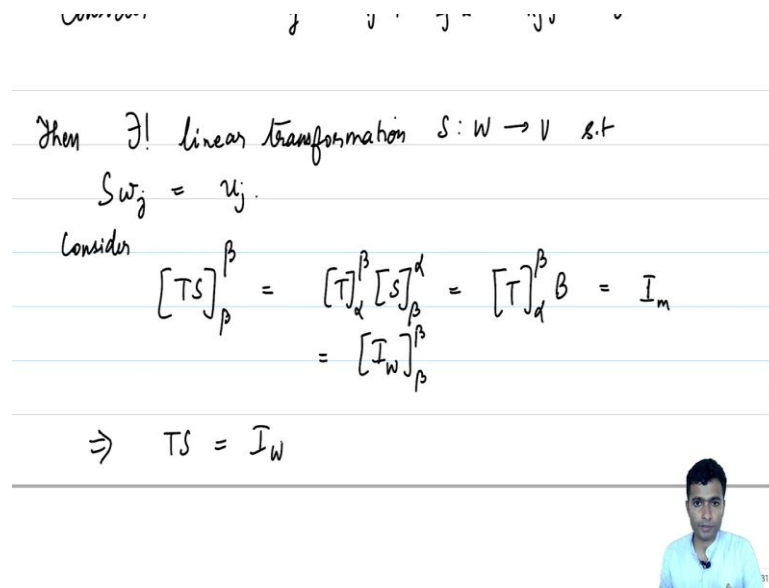 Then ∃! linear transformation S : W → V s.t
Swⱼ = uⱼ.
Consider
[TS]_β^β = [T]_α^β [S]_β^α = [T]_α^β B = I_m
= [I_W]_β^β
⇒ TS = I_W